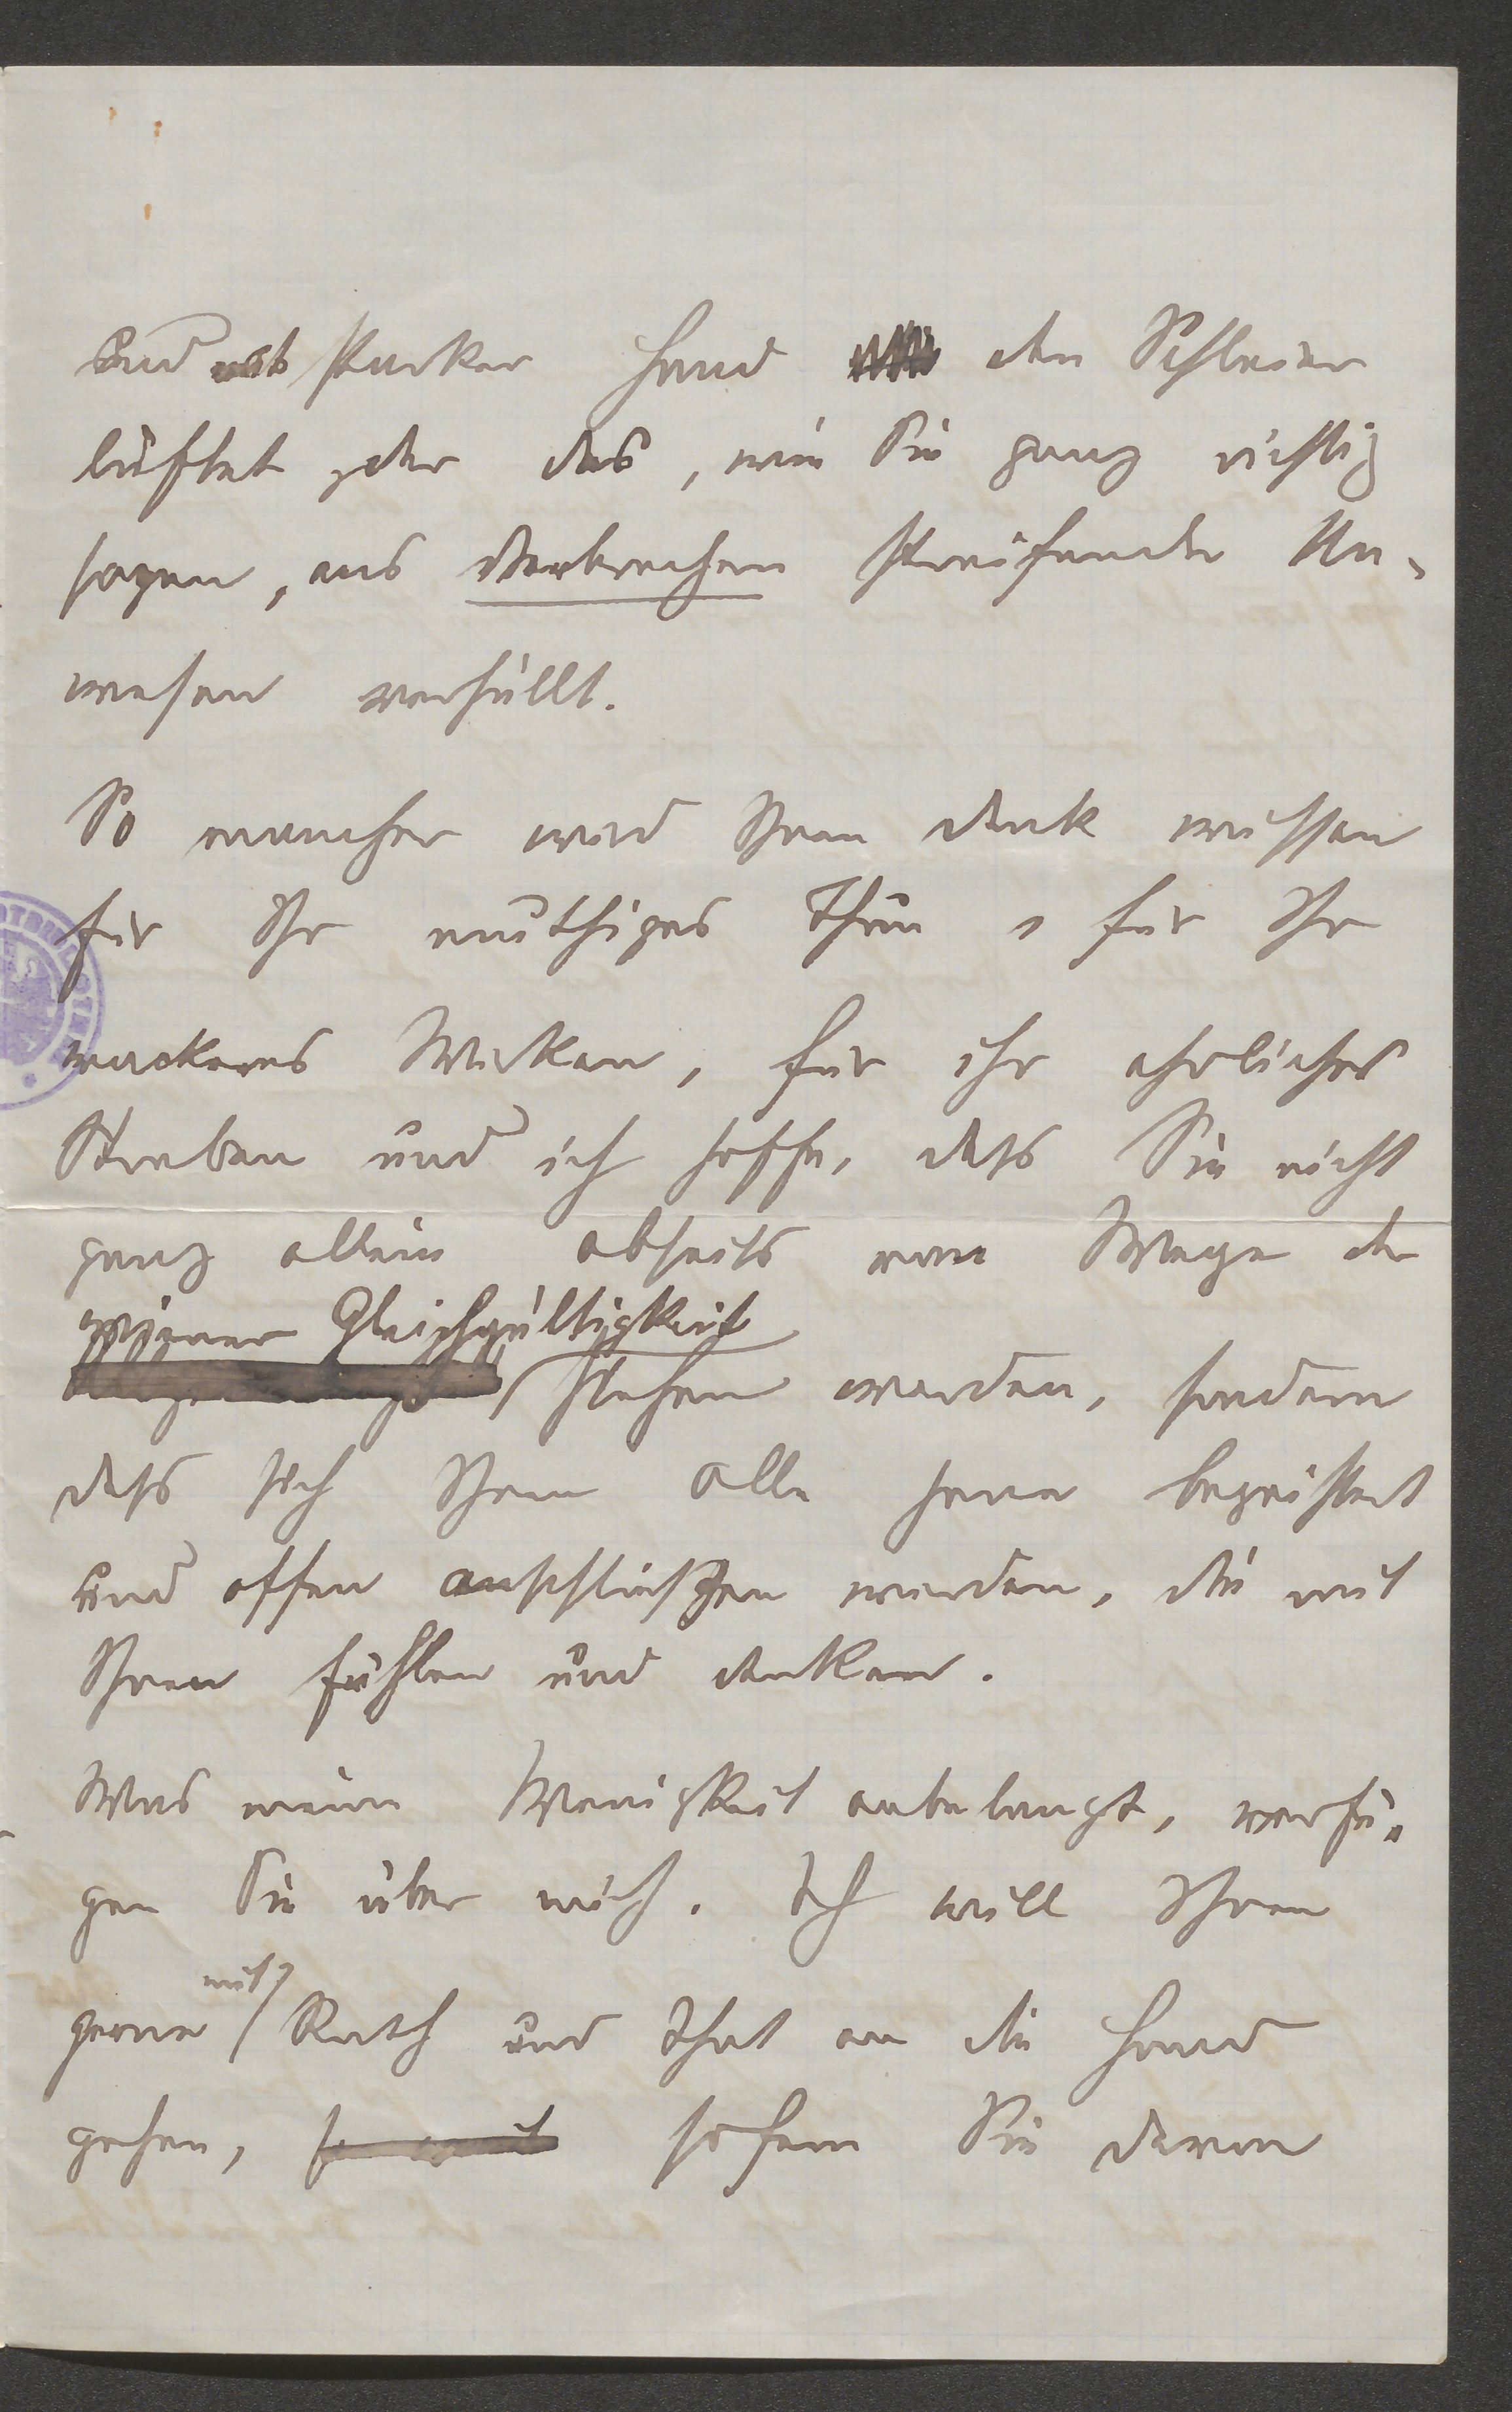 und mit starker Hand den Schleier
lüftet, der das, wie Sie ganz richtig
sagen, ans Verbrechen streifende Un-
wesen verhüllt.
So mancher wird Ihnen Dank wissen
für Ihr muthiges Thun, für Ihr
wackeres Wirken, für ihr ehrliches
Streben und ich hoffe, dass Sie nicht
ganz allein abseits vom Wege der
Wiener Gleichgültigkeit
stehen werden, sondern
dass sich Ihnen alle jene begeistert
und offen anschließen werden, die mit
Ihnen fühlen und denken.
Was meine Wenigkeit anbelangt, verfü-
gen Sie über mich. Ich will Ihnen
gerne mit Rath und That an die Hand
gehen, so weit sofern Sie davon